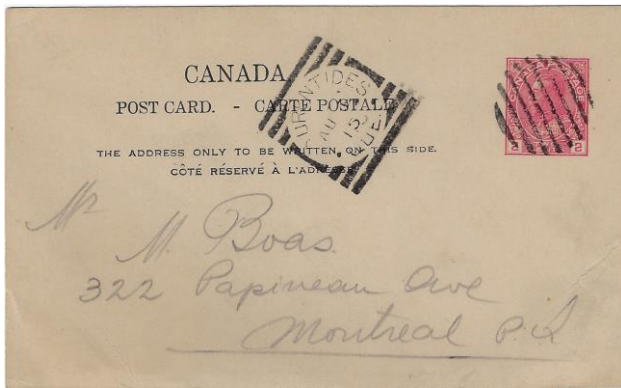 CANADA
POST CARD. - CARTE POSTALE
THE ADDRESS ONLY TO BE WRITTEN ON THIS SIDE.
CÔTÉ RÉSERVÉ À L'ADRESSE
LAURENTIDES
AU 15
QUE
CANADA POSTAGE
2 2
Mr
M. Boas.
322 Papineau Ave
Montreal P.Q